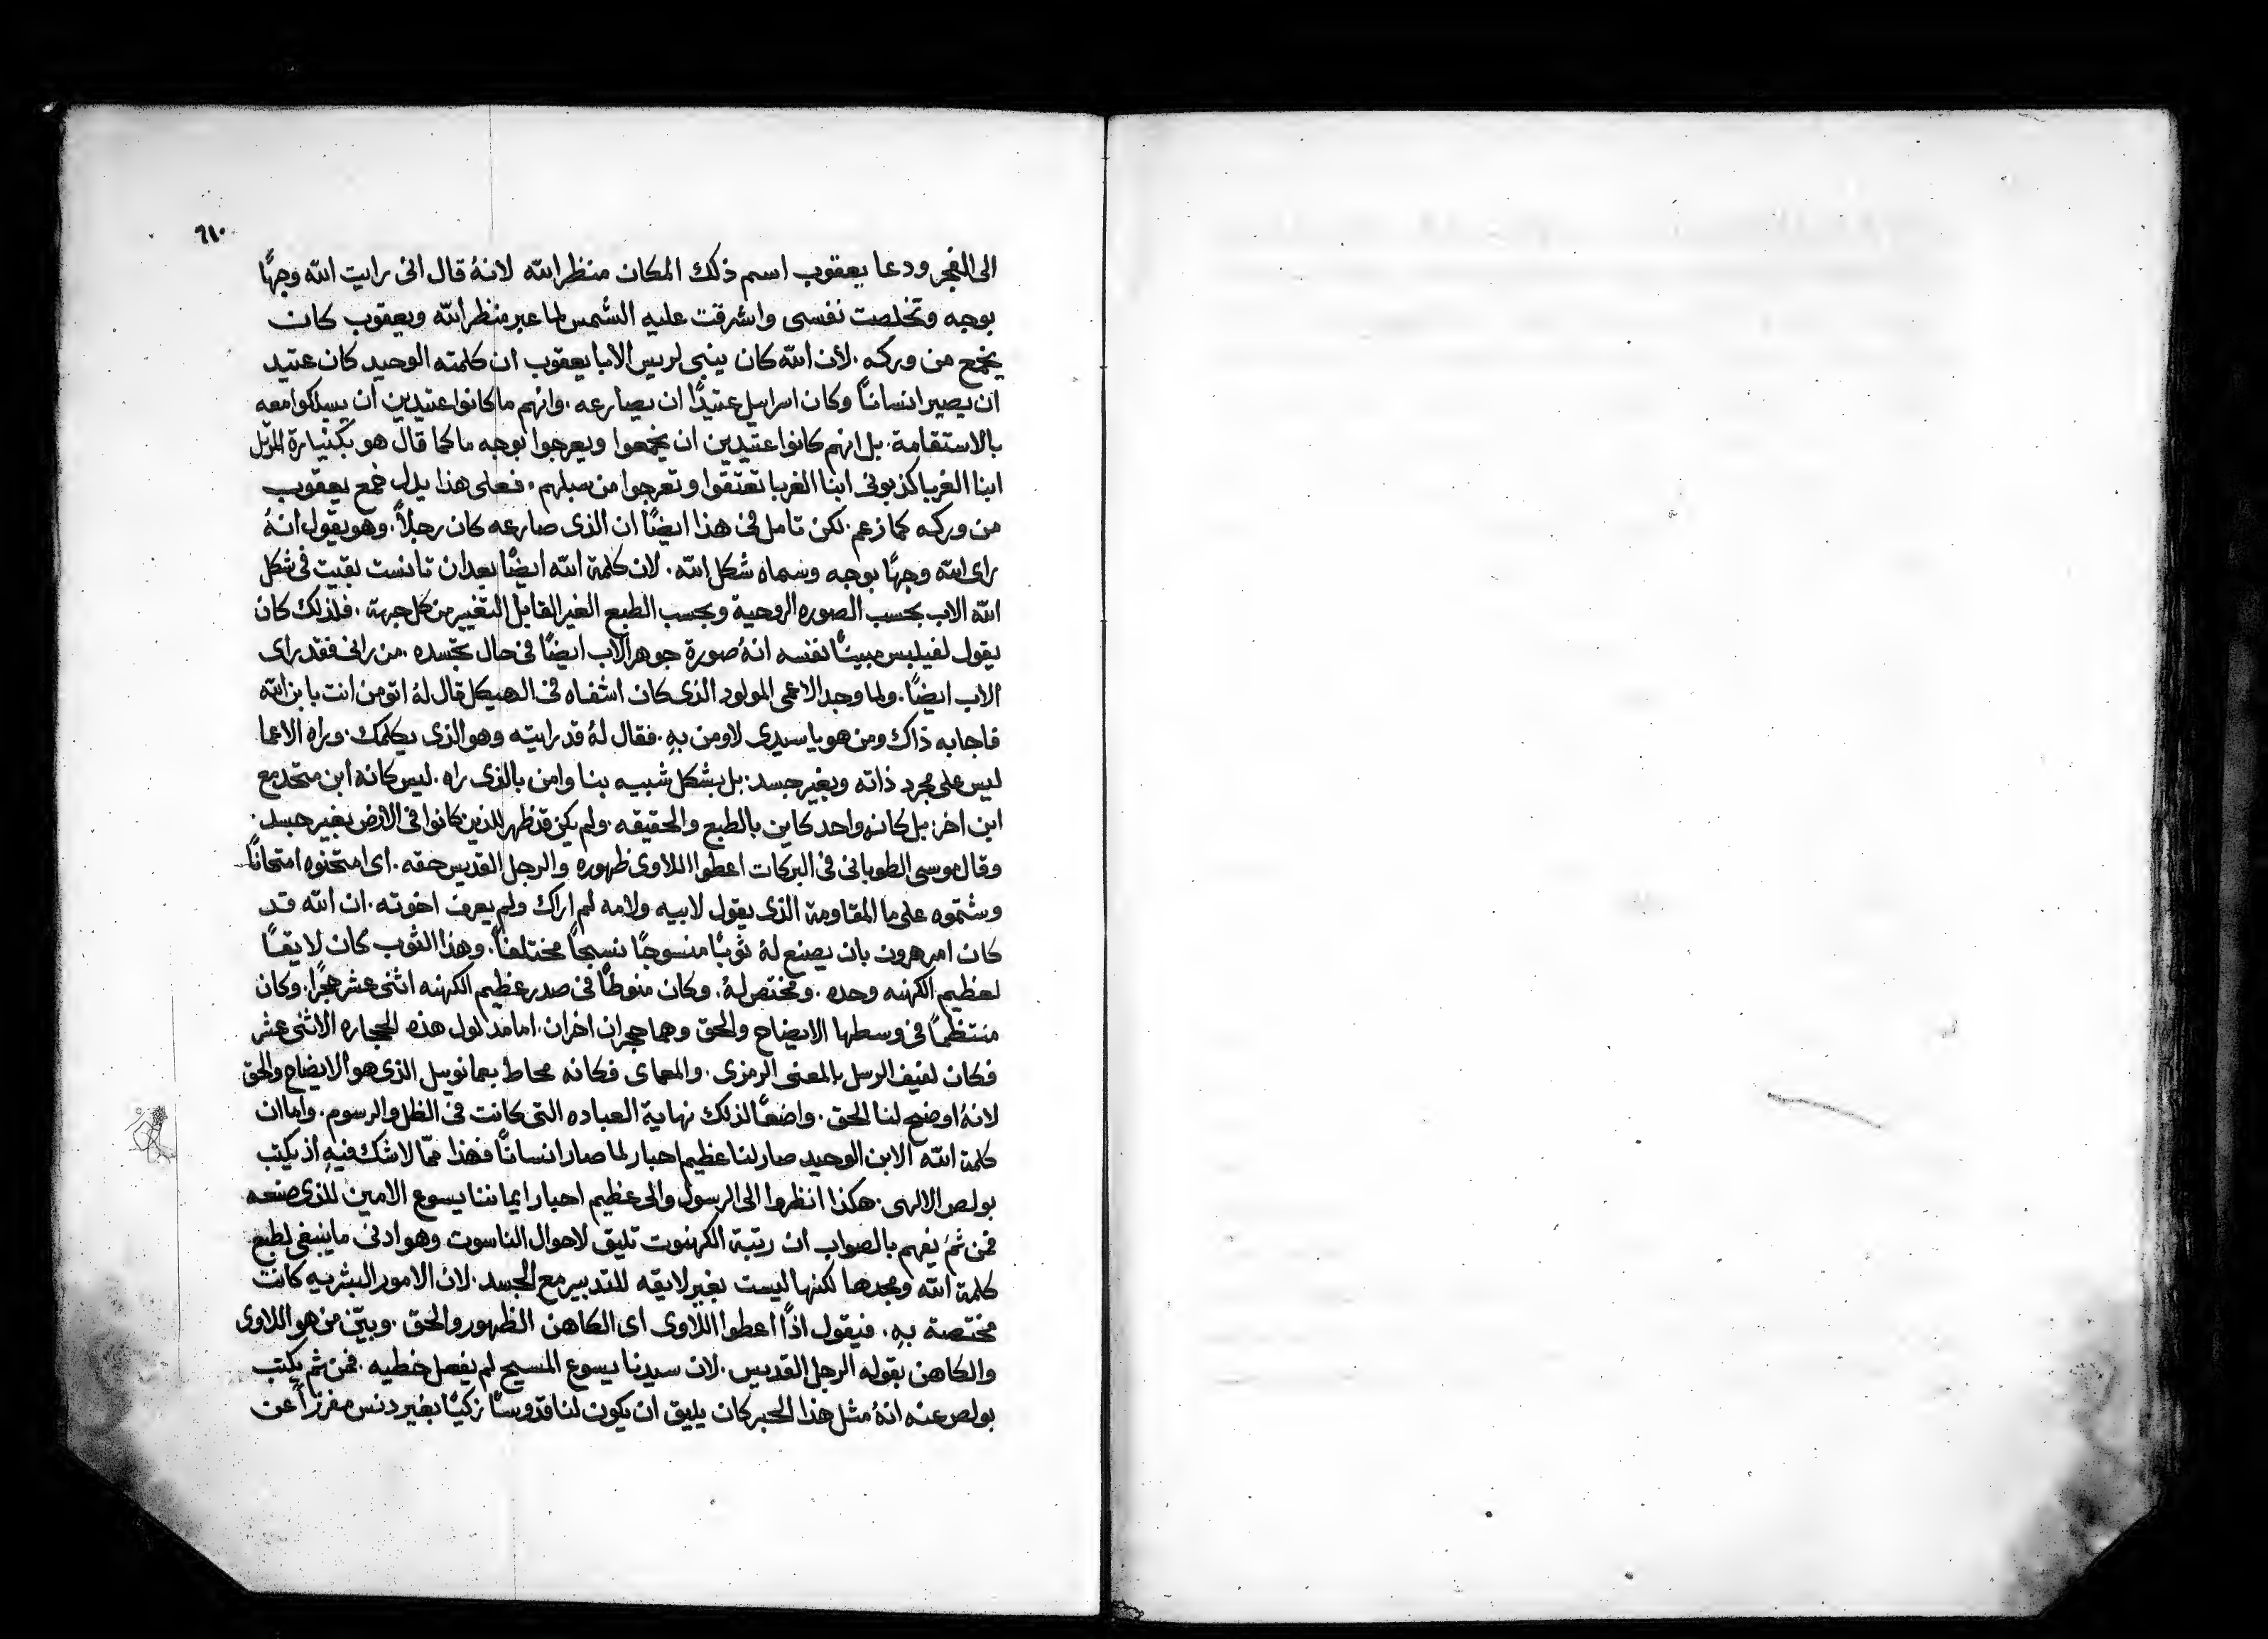 ٦١٠
الى الفجر ودعا يعقوب اسم ذلك المكان منظر الله لانهُ قال انى رايت الله وجهًا
بوجه وتخلصت نفسى واشرقت عليه الشمس لما عبر منظر الله ويعقوب كان
يخمع من وركه. لأن الله كان ينبى لريس الابا يعقوب ان كلمته الوحيد كان عتيد
ان يصير انسانًا وكان اسراييل عتيدًا ان يصارعه. وانهم ما كانوا عتيدين ان يسلكوا معه
بالاستقامة. بل انهم كانوا عتيدين ان يخمعوا ويعرجوا بوجه ما كما قال هو المرتل
ابنا الغربا كذبونى ابنا الغربا تعتقوا وتعرجوا من سبلهم. فعلى هذا يدل خمع يعقوب
من وركه كما زعم. لكن تامل فى هذا ايضًا ان الذى صارعه كان رجلاً. وهو يقول انهُ
راى الله وجهًا بوجه وسماه شكل الله. لان كلمة الله ايضًا بعد ان تانست بقيت فى شكل
الله الاب بحسب الصوره الروحية وبحسب الطبع الغير القابل التغيير من كل جهة. فلذلك كان
يقول لفيلبس مبينًا نفسه انهُ صورة جوهر الاب ايضًا فى حال تجسده. من رانى فقد راى
الاب ايضًا. ولما وجد الاعمى المولود الذى كان اشفاه فى الهيكل قال لهُ اتومن انت بابن الله
فاجابه ذاك ومن هو يا سيدى لاومن بهِ. فقال لهُ قد رايته وهو الذى يكلمك. وراه الاعما
ليس على مجرد ذاته وبغير جسد. بل بشكل شبيه بنا وامن بالذى راه. ليس كانه ابن متحد مع
ابن اخر. بل كانه واحد كاين بالطبع والحقيقه. ولم يكن قد ظهر للذين كانوا فى الارض بغير جسد.
وقال موسى الطوبانى فى البركات اعطوا اللاوى ظهوره والرجل القديس حقه. اى امتحنوه امتحانًا
وشتموه على ما المقاومة الذى يقول لابيه ولامه لم اراك ولم يعرف اخوته. ان الله قد
كان امر هرون بان يصنع لهُ ثوبًا منسوجًا نسيجاً مختلفاً. وهذا الثوب كان لايقًا
لعظيم الكهنه وحده. ومختص لهُ. وكان منوطًا فى صدر عظيم الكهنه اثنى عشر حجرًا. وكان
منتظمًا فى وسطها الايضاح والحق وهما حجران اخران. اما مدلول هذه الحجاره الاثنى عشر
فكان لفيف الرسل بالمعنى الرمزى. والمعماى فكانه محاط بعمانوييل الذى هو الايضاح والحق
لانهُ اوضح لنا الحق. واضعًا لذلك نهاية العباده التى كانت فى الظل والرسوم. واما ان
كلمة الله الابن الوحيد صار لنا عظيم احبار لما صار انسانًا فهذا ممّا لا شك فيهِ اذ يكتب
بولص الالهى. هكذا انظروا الى الرسول والى عظيم احبار ايماننا يسوع الامين للذى صنعه
فمن ثمَ يفهم بالصواب ان رتبة الكهنوت تليق لاحوال الناسوت وهو ادنى ما ينبغى لطبع
كلمة الله ومجدها لكنها ليست بغير لايقه للتدبير مع الجسد. لان الامور البشريه كانت
مختصة بهِ. فيقول اذًا اعطوا اللاوى اى الكاهن الظهور والحق. وبيّن من هو اللاوى
والكاهن بقوله الرجل القديس. لان سيدنا يسوع المسيح لم يفعل خطيه. فمن ثم يكتب
بولص عنه انهُ مثل هذا الحبر كان يليق ان يكون لنا قدوسًا زكيًا بغير دنس مفرزاً عن